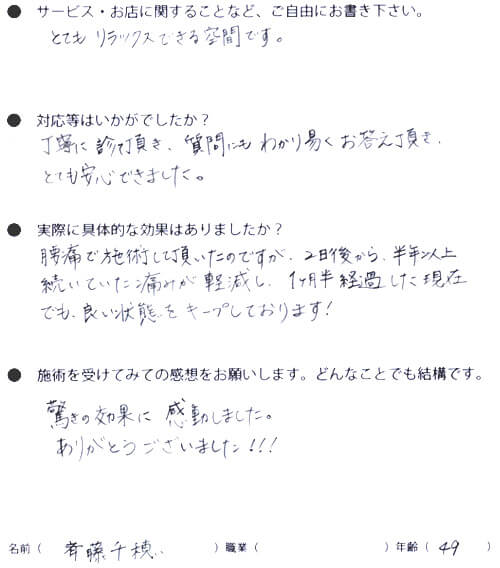 ● サービス・お店に関することなど、ご自由にお書き下さい。
とても リラックスできる空間です。
● 対応等はいかがでしたか？
丁寧に診て頂き、質問にも わかり易く お答え頂き、
とても安心できました。
● 実際に具体的な効果はありましたか？
腰痛で施術して頂いたのですが、2日後から、半年以上
続いていた痛みが軽減し、1ヶ月半経過した現在
でも、良い状態をキープしております！
● 施術を受けてみての感想をお願いします。どんなことでも結構です。
驚きの効果に 感動しました。
ありがとうございました！！！
名前（ 斉藤千穂 ）職業（ ）年齢（ 49 ）